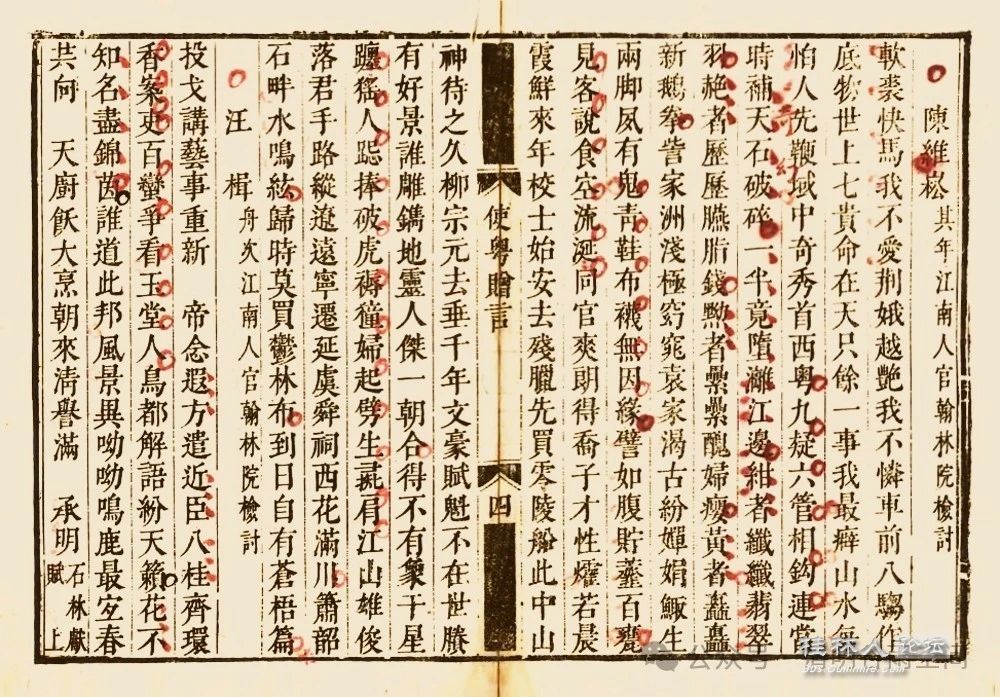 陳維崧 其年江南人官翰林院檢討
軟裘快馬我不愛荆娥越艷我不憐車前八騶作
底物世上七貴命在天只餘一事我最癖山水每
怕人先鞭域中奇秀首西粤九疑六管相鈎連當
時補天石破碎一半竟墮灕江邊紺者纖纖翡翠
羽赩者歷歷臙脂錢黝者纍纍醜婦癭黃者矗矗
新鵝拳訾家洲淺極窈窕袁家渴古紛嬋娟鯫生
兩脚夙有鬼青鞋布襪無因緣譬如腹貯虀百甕
見客說食空流涎同官爽朗得喬子才性爠若晨
霞鮮來年校士始安去殘臘先買零陵船此中山
使粤贈言 四
神待之久柳宗元去垂千年文豪賦魁不在世賸
有好景誰雕鐫地靈人傑一朝合得不有象干星
躔猺人跽捧破虎褥獞婦起劈生彘肩江山雄俊
落君手路縱遼遠寧遷延虞舜祠西花滿川簫韶
石畔水鳴絃歸時莫買鬱林布到日自有蒼梧篇
汪 楫 舟次江南人官翰林院檢討
投戈講藝事重新 帝念遐方遣近臣八桂齊環
香案吏百蠻爭看玉堂人鳥都解語紛天籟花不
知名盡錦茵誰道此邦風景異呦呦鳴鹿最宐春
共向 天廚飫大烹朝來淸譽滿 承明 石林獻賦上
桂林人论坛
公众号